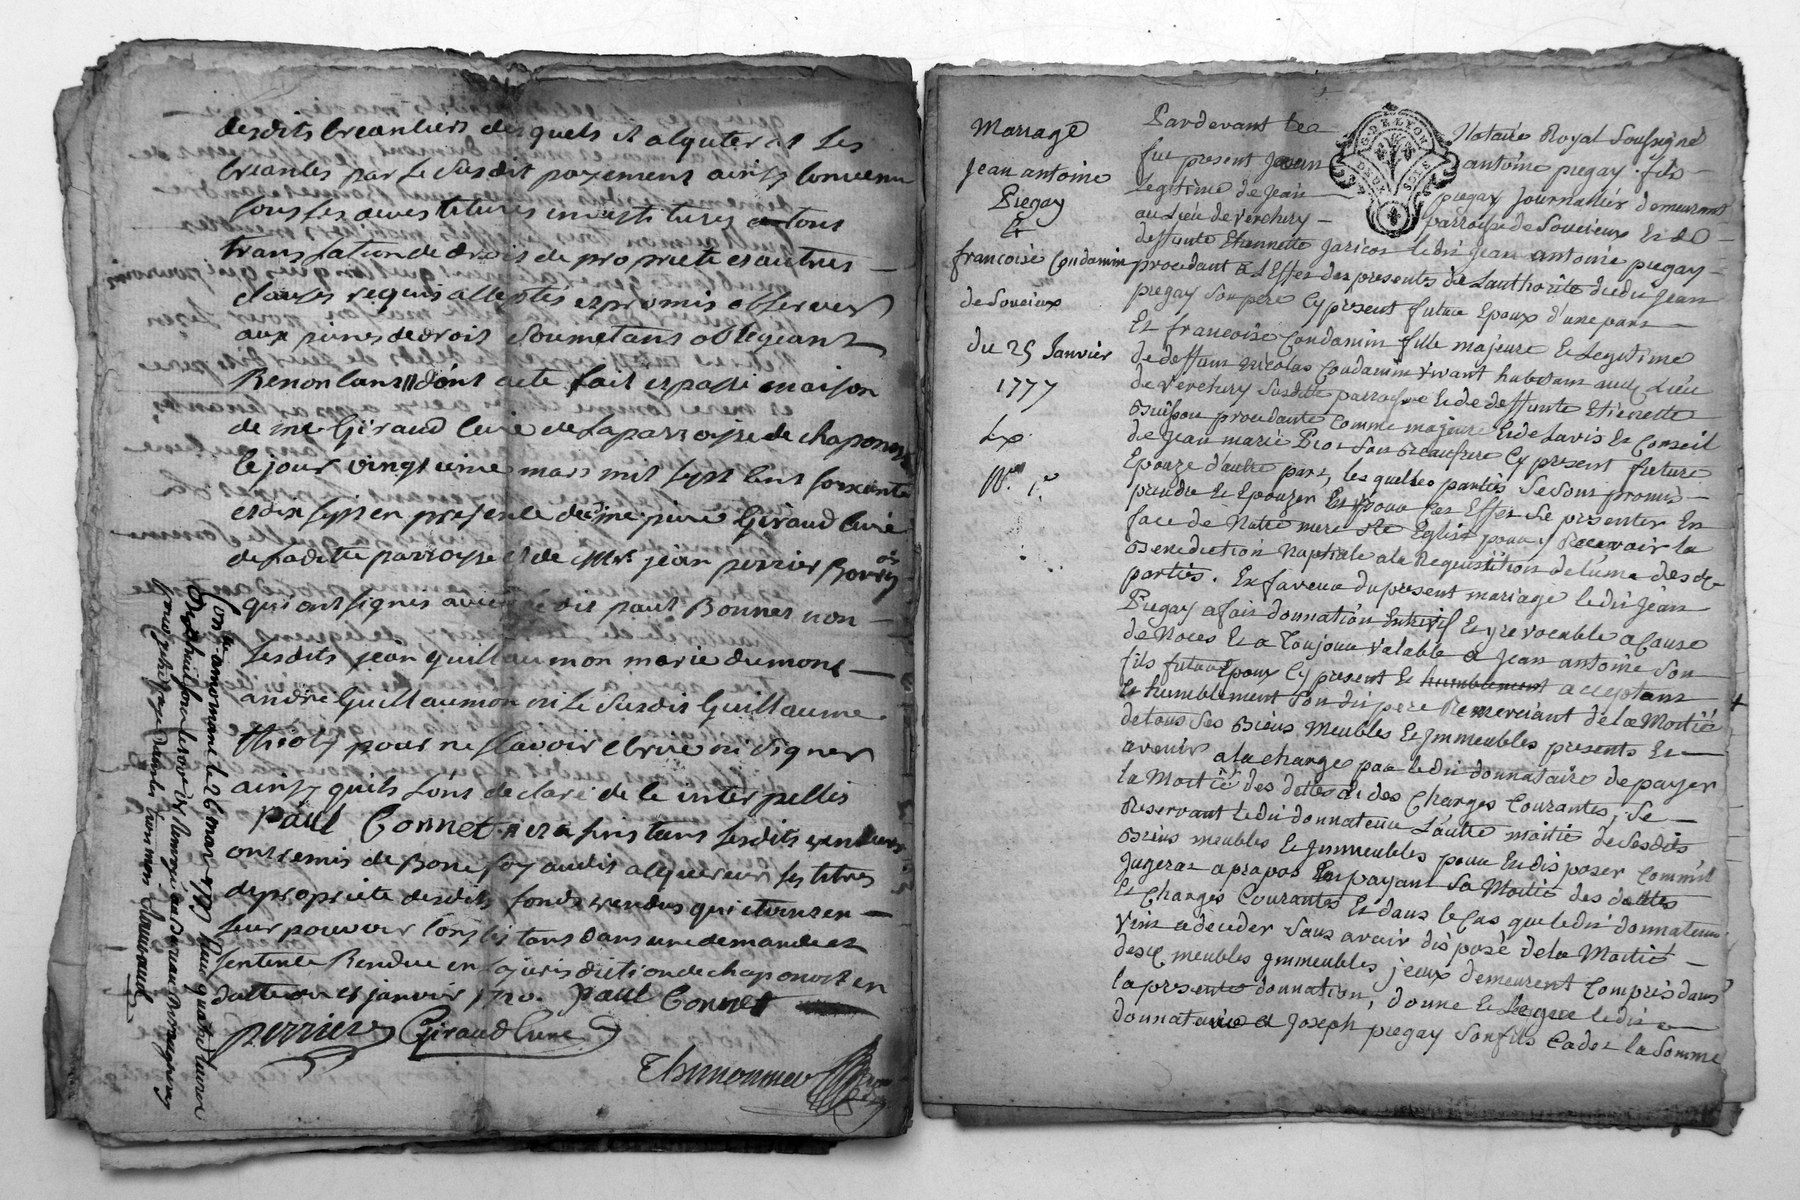 desdits creanciers desquels il aquitera les
creances par le susdit payement ainsy convenu
tous les devestitures investitures a tous
translation de droit de propriete et autres
clauses requis acceptés et promis observer
aux peines de droit soumetans obligeant
Renoncant dont acte fait et passé maison
de me Giraud Curé de la parroisse de chaponost
le jour vingt uime mars mil sept cent soixante
et dix sept en presence dudit me Giraud Curé
de laditte parroysse et de Mr jean perrier
qui ont signés avec ledit paul Bonnet non
lesdits jean guillaumon marie dumont
andré Guillaumon ni le susdit Guillaume
thioly pour ne scavoir ecrire ni signer
ainsy quils l'ont declaré de ce interpellés
Paul Connet lesdits vendeurs
ont remis de Bone foy audit aquereur les titres
de propriete desdits fonds vendus qui etoient en
leur pouvoir consistans dans une demande et
sentence Rendue en la jurisdiction de chaponost en
datte du janvier paul Connet
perrier Giraud Cure
Thimonnier
Mariage
Jean antoine
Pregay
Et
francoise Condamin
de Soucieux
du 25 Janvier
1777
G. DE LYON
DEUX SOLS
Pardevant Le Notaire Royal Soussigné
fut present Jean antoine pregay fils
Legitime de Jean pregay Journalier demeurant
au Lieu de Verchery parroisse de Soucieux Et de
deffunte Etiennette Jaricot ledit Jean antoine pregay
procedant a L'Effet des presentes de L'authorité dudit Jean
pregay Son pere Cy present futur Epoux d'une part
Et francoise Condamin fille majeure Et Legitime
de deffunt Nicolas Condamin vivant habitant audit Lieu
de Verchery Susditte parroisse Et de deffunte Etienette
Buisson procedante Comme majeure Et de L'avis Et Conseil
de Jean marie Son Beaufrere Cy present future
Epouze d'autre part, les quelles parties Se Sont promis
prendre Et Epouzer Et pour Cet Effet Se presenter En
face de Notre mere Ste Eglise pour y Recevoir la
Benediction Nuptiale a la Requisition de L'une desd.
parties. En faveur du present mariage ledit Jean
Pregay a fait donnation Entrevif Et yrevocable a Cause
de Noces Et a Toujour valable a Jean antoine Son
fils futur Epoux Cy present Et humblement acceptant
Et humblement Son dit pere Remerciant de la Moitié
de tous Ses Biens Meubles Et Immeubles presents Et
avenir a la charge par ledit donnataire de payer
la Moitié des dettes et des Charges Courantes, Se
Reservant ledit donnateur L'autre moitié de Sesdits
Biens meubles Et Immeubles pour En disposer Comm'il
Jugeras apropos En payant Sa Moitié des dettes
Et Charges Courantes Et dans le Cas que ledit donnateur
Vint a deceder Sans avoir disposé de la Moitié
desd. meubles Immeubles jceux demeurent Compris dans
la presente donnation, donne Et Legue ledit
donnateur a Joseph pregay Son fils Cadet la Somme